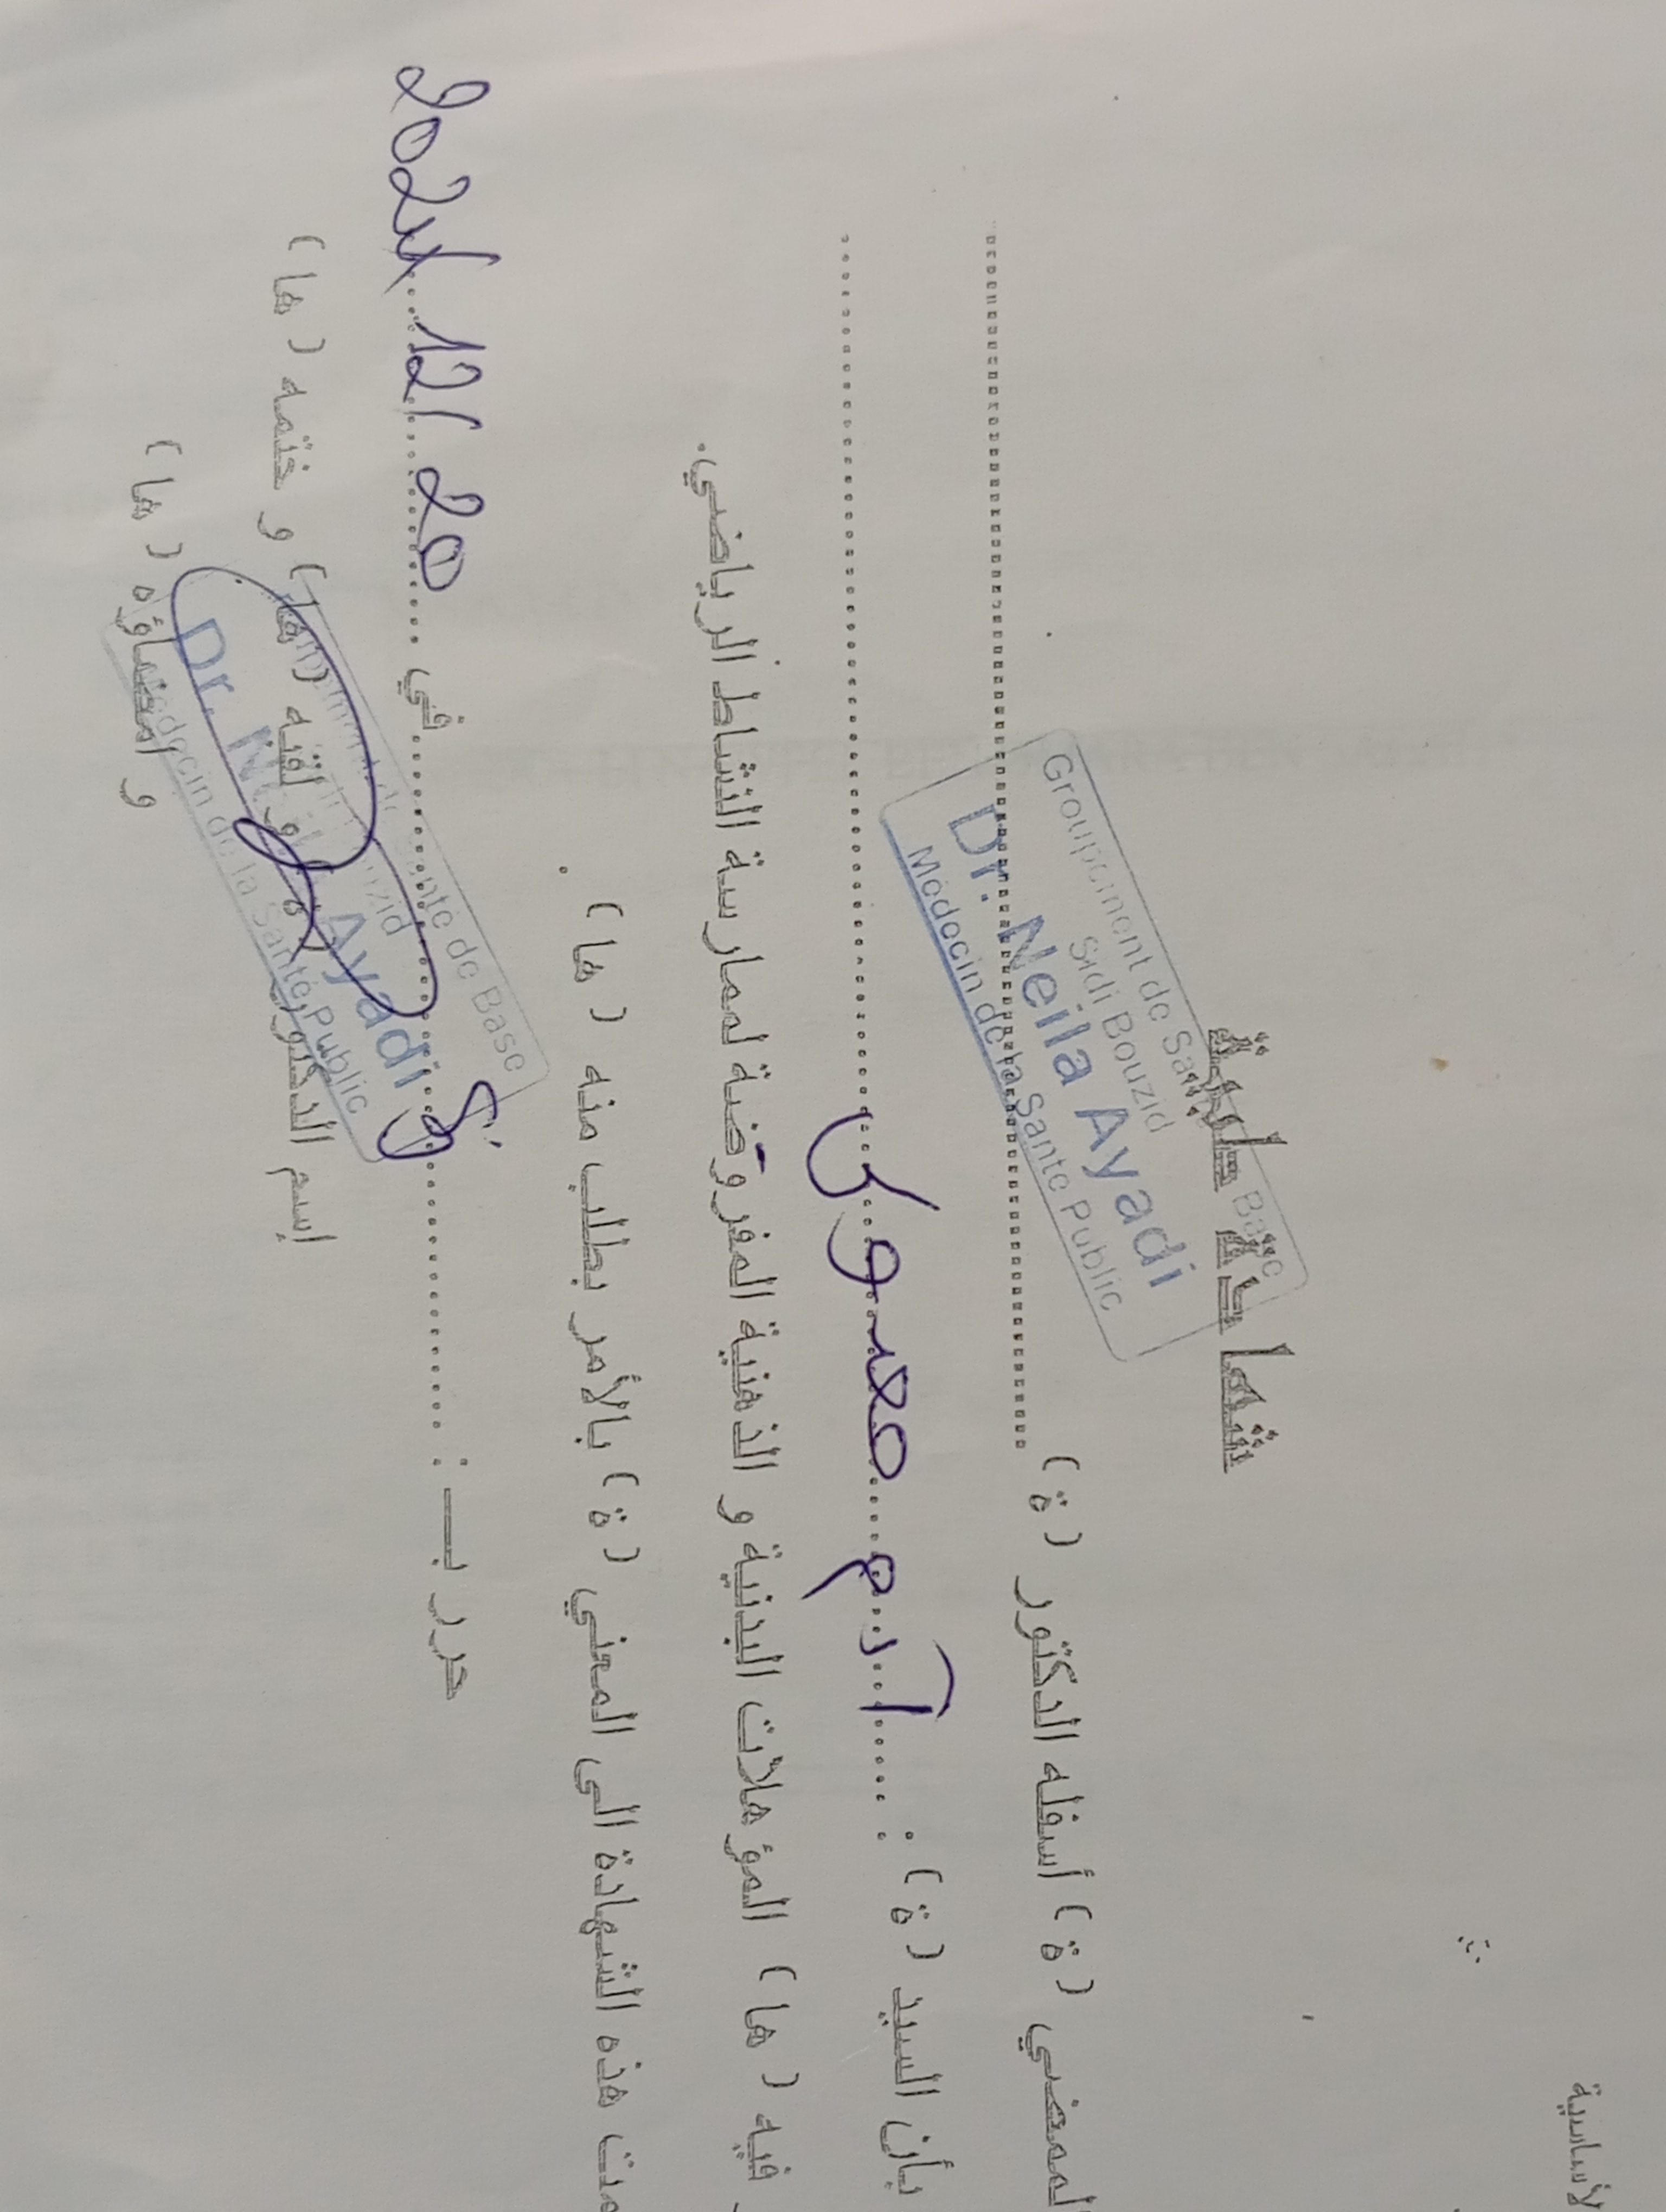 لأساسية
شهادة طبية
Groupement de Santé de Base
Sidi Bouzid
Dr. Neila Ayadi
Médecin de la Santé Public
لممضي ( ة ) أسفله الدكتور ( ة ) ............
بأن السيد ( ة ) : ..... آدم .... معمري ............
فيه ( ها ) المؤهلات البدنية و الذهنية المفروضة لممارسة النشاط الرياضي.
هذه الشهادة الى المعني ( ة ) بالأمر بطلب منه ( ها ) .
حرر بـــ : ............ في ...... 20 / 12 / 2024
إسم الدكتور ( ها ) و لقبه ( ها ) و ختمه ( ها )
و امضاؤه ( ها )
Santé de Base
Bouzid
Dr. Neila Ayadi
Médecin de la Santé Public